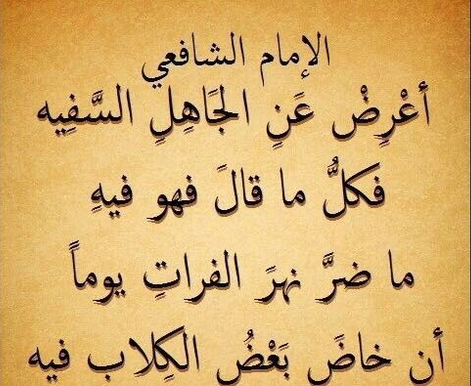 الإمام الشافعي
أعْرِضْ عَنِ الجَاهِلِ السَّفِيه
فَكلُّ ما قالَ فهو فيهِ
ما ضرَّ نهرَ الفراتِ يوماً
أن خاضَ بَعْضُ الكِلاب فيه